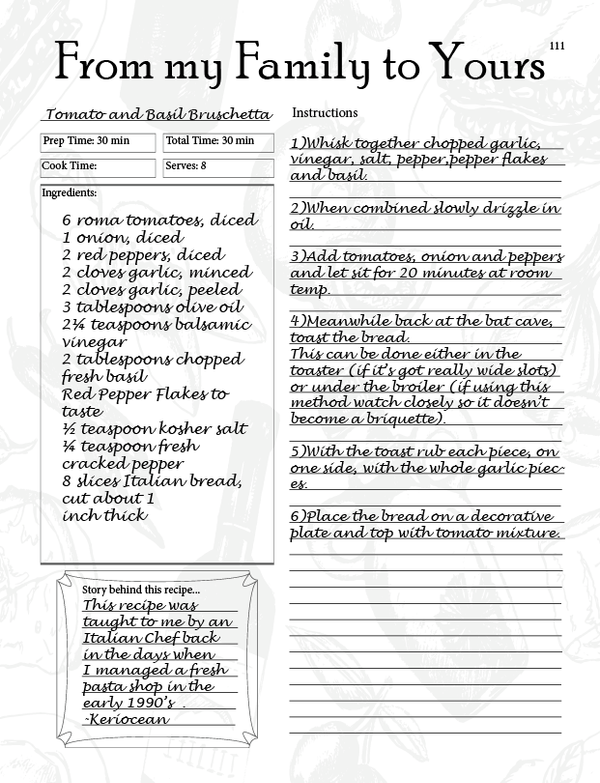 From my Family to Yours
111
Tomato and Basil Bruschetta
Prep Time: 30 min
Total Time: 30 min
Cook Time:
Serves: 8
Ingredients:
6 roma tomatoes, diced
1 onion, diced
2 red peppers, diced
2 cloves garlic, minced
2 cloves garlic, peeled
3 tablespoons olive oil
2¼ teaspoons balsamic
vinegar
2 tablespoons chopped
fresh basil
Red Pepper Flakes to
taste
½ teaspoon kosher salt
¼ teaspoon fresh
cracked pepper
8 slices Italian bread,
cut about 1
inch thick
Story behind this recipe...
This recipe was
taught to me by an
Italian Chef back
in the days when
I managed a fresh
pasta shop in the
early 1990's .
-Keriocean
Instructions
1)Whisk together chopped garlic,
vinegar, salt, pepper,pepper flakes
and basil.
2)When combined slowly drizzle in
oil.
3)Add tomatoes, onion and peppers
and let sit for 20 minutes at room
temp.
4)Meanwhile back at the bat cave,
toast the bread.
This can be done either in the
toaster (if it's got really wide slots)
or under the broiler (if using this
method watch closely so it doesn't
become a briquette).
5)With the toast rub each piece, on
one side, with the whole garlic piec-
es.
6)Place the bread on a decorative
plate and top with tomato mixture.